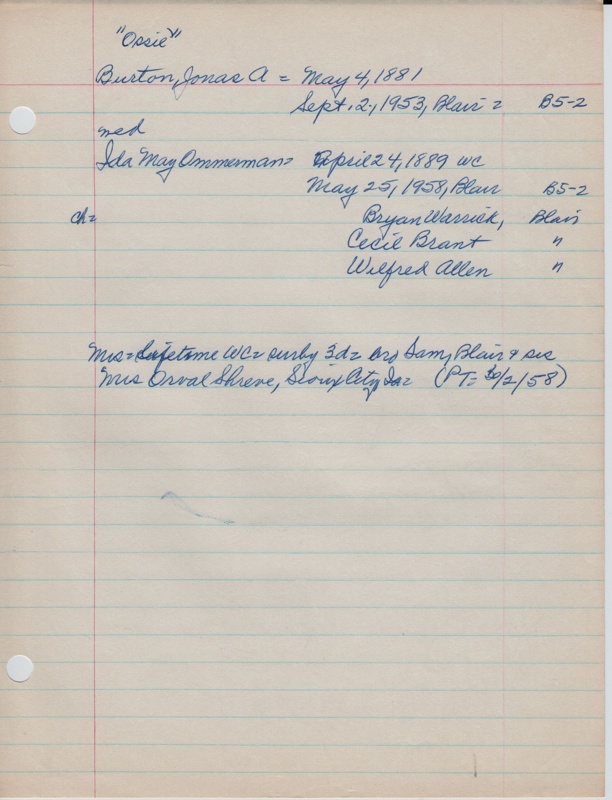 "Ossie"
Burton, Jonas A = May 4, 1881
Sept. 2, 1953, Blair = B5-2
med
Ida May Ommerman = April 24, 1889 WC
May 25, 1958, Blair B5-2
ch = Bryan Warrick, Blair
Cecil Brant "
Wilfred Allen "
Mrs = Lifetime WC = surby 3d = bro Sam, Blair & sis
Mrs Orval Shreve, Sioux City, Ia = (PT = /2/58)